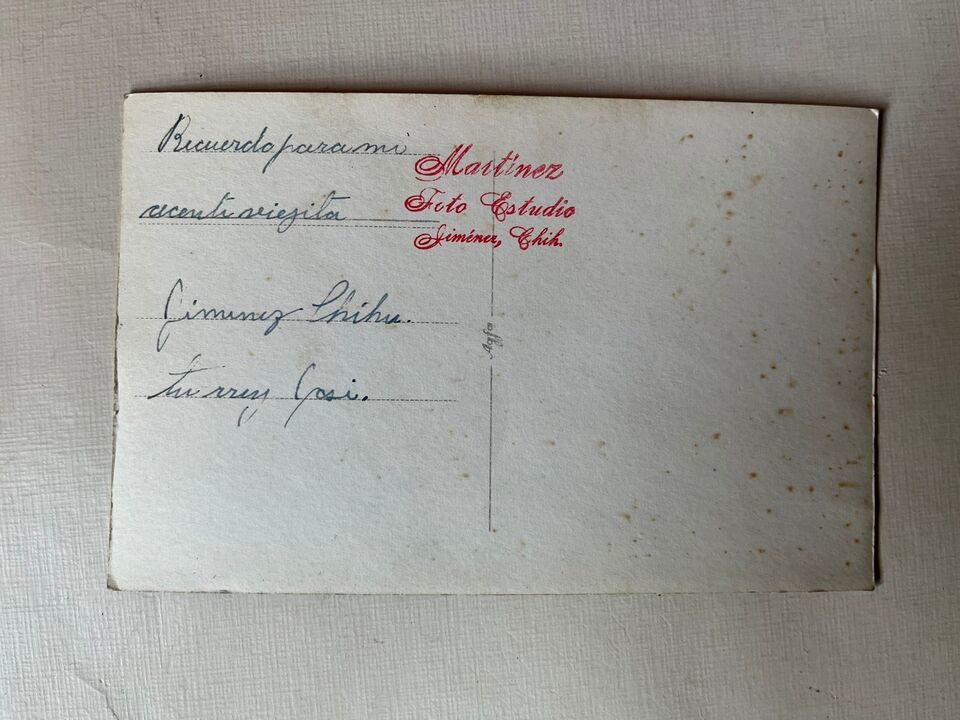 Recuerdo para mi
viezita
Jimenez Chihu.
tu rrey Josi.
Martínez
Foto Estudio
Jiménez, Chih.
Agfa